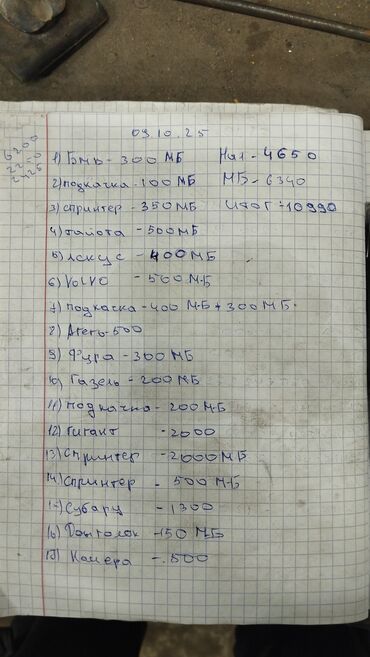 09.10.25
6200
1) Бмв - 300 МБ Нал - 4650
2) подкачка - 100 МБ МБ - 6340
3) спринтер - 350 МБ Итог - 10990
4) тайота - 500 МБ
5) лексус - 400 МБ
6) Volvo - 500 МБ
7) подкачка - 400 МБ + 300 МБ.
8) - 500
9) Фура - 300 МБ
10) Газель - 200 МБ
11) подкачка - 200 МБ
12) Гигант - 2000
13) спринтер - 2000 МБ
14) спринтер - 500 МБ
15) Субару - 1300
16) - 150 МБ
17) Камера - 500